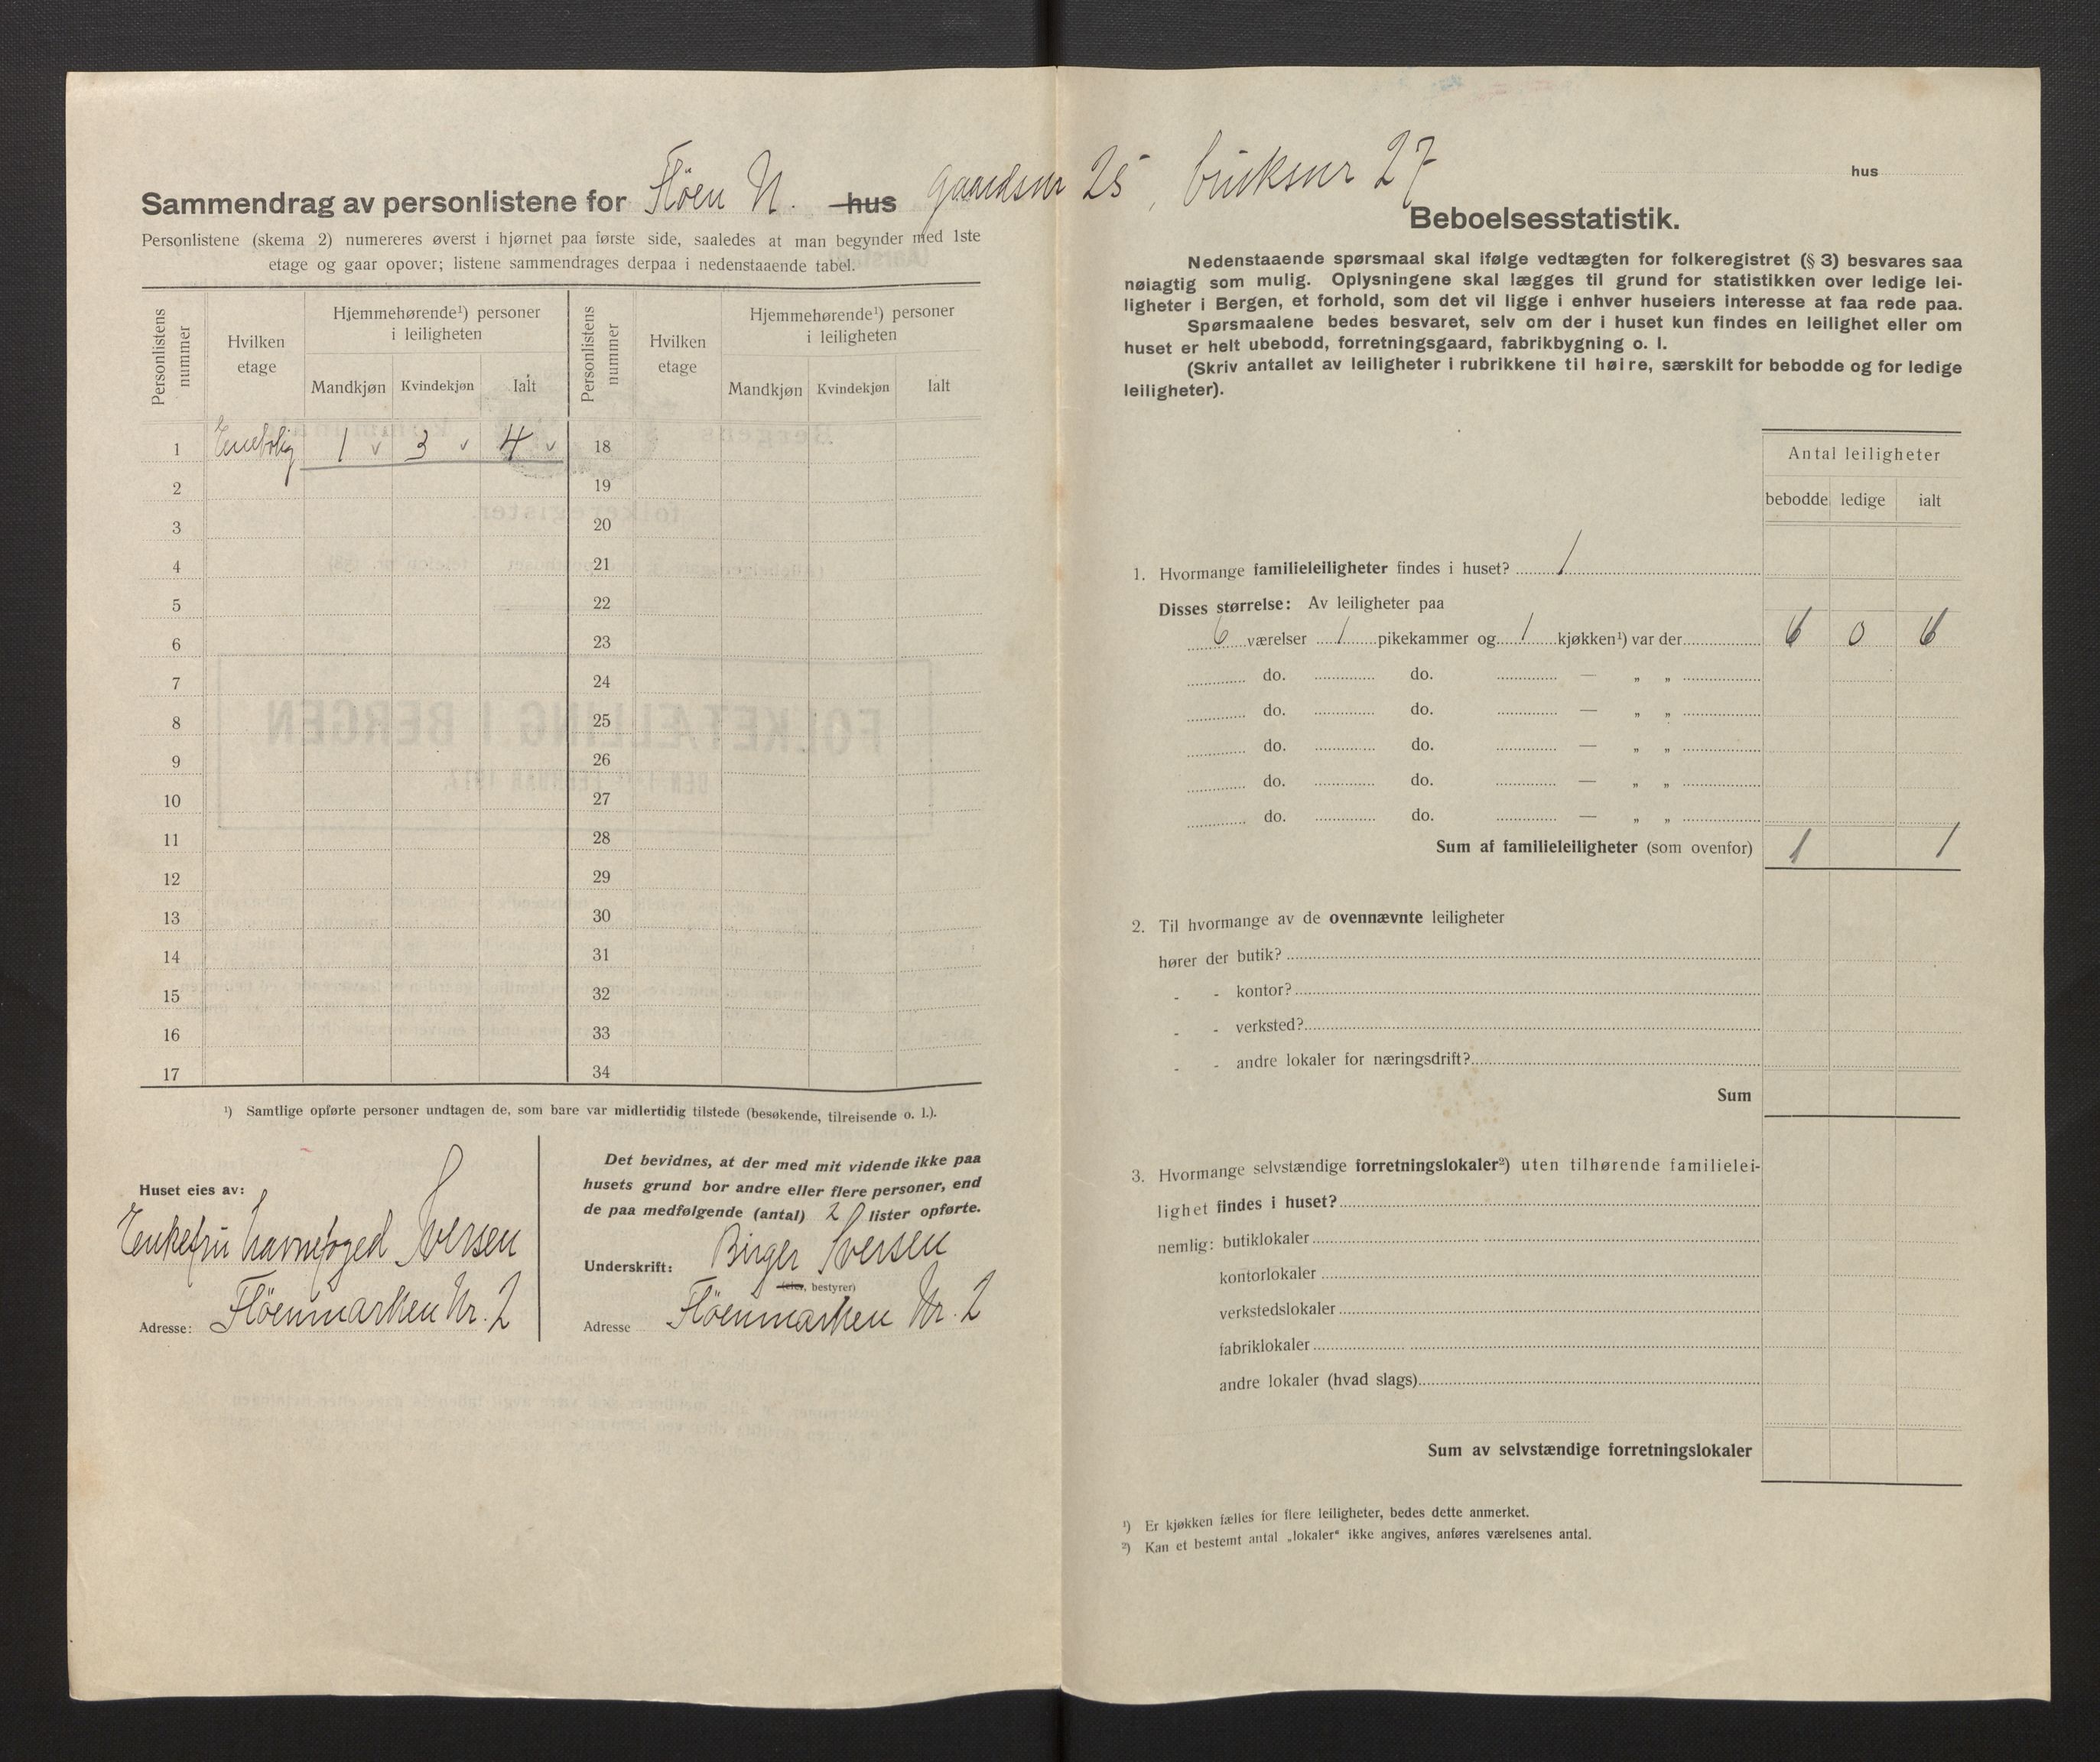 Sammendrag av personlistene for Flöen N. hus gaardsnr 25, bruksnr 27
Personlistene (skema 2) numereres øverst i hjørnet paa første side, saaledes at man begynder med 1ste
etage og gaar opover; listene sammendrages derpaa i nedenstaaende tabel.
Personlistens nummer
Hvilken etage
Hjemmehørende¹) personer i leiligheten
Mandkjøn Kvindekjøn Ialt
Personlistens nummer
Hvilken etage
Hjemmehørende¹) personer i leiligheten
Mandkjøn Kvindekjøn Ialt
1 Enebolig 1 v 3 v 4 v 18
2 19
3 20
4 21
5 22
6 23
7 24
8 25
9 26
10 27
11 28
12 29
13 30
14 31
15 32
16 33
17 34
¹) Samtlige opførte personer undtagen de, som bare var midlertidig tilstede (besøkende, tilreisende o. l.).
Huset eies av:
Enkefru havnefoged Iversen
Adresse: Flöenmarken Nr. 2
Det bevidnes, at der med mit vidende ikke paa
husets grund bor andre eller flere personer, end
de paa medfølgende (antal) 2 lister opførte.
Underskrift: Birger Iversen
(eier, bestyrer)
Adresse Flöenmarken Nr. 2
hus
Beboelsesstatistik.
Nedenstaaende spørsmaal skal ifølge vedtægten for folkeregistret (§ 3) besvares saa
nøiagtig som mulig. Oplysningene skal lægges til grund for statistikken over ledige lei-
ligheter i Bergen, et forhold, som det vil ligge i enhver huseiers interesse at faa rede paa.
Spørsmaalene bedes besvaret, selv om der i huset kun findes en leilighet eller om
huset er helt ubebodd, forretningsgaard, fabrikbygning o. l.
(Skriv antallet av leiligheter i rubrikkene til høire, særskilt for bebodde og for ledige
leiligheter).
Antal leiligheter
bebodde ledige ialt
1. Hvormange familieleiligheter findes i huset? 1
Disses størrelse: Av leiligheter paa
6 værelser 1 pikekammer og 1 kjøkken¹) var der 6 0 6
do. do. — „ „
do. do. — „ „
do. do. — „ „
do. do. — „ „
do. do. — „ „
Sum af familieleiligheter (som ovenfor) 1 1
2. Til hvormange av de ovennævnte leiligheter
hører der butik?
- - kontor?
- - verksted?
- - andre lokaler for næringsdrift?
Sum
3. Hvormange selvstændige forretningslokaler²) uten tilhørende familielei-
lighet findes i huset?
nemlig: butiklokaler
kontorlokaler
verkstedslokaler
fabriklokaler
andre lokaler (hvad slags)
Sum av selvstændige forretningslokaler
¹) Er kjøkken fælles for flere leiligheter, bedes dette anmerket.
²) Kan et bestemt antal „lokaler“ ikke angives, anføres værelsenes antal.